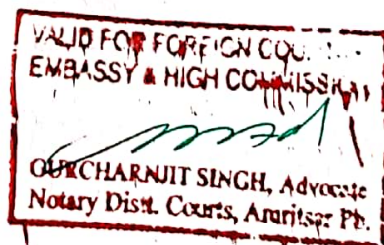 VALID FOR FOREIGN COU
EMBASSY & HIGH COMMISSION
GURCHARNJIT SINGH, Advocate
Notary Distt. Courts, Amritsar Pb.